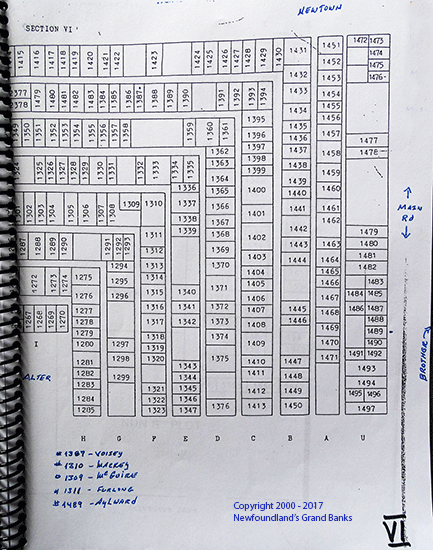 NEWTOWN
SECTION VI
1415 1416 1417 1418 1419 1420 1421 1422 1423 1424 1425 1426 1427 1428 1429 1430 1431 1451 1472 1473
1474
1475
1432 1452 1476
1377 1479 1480 1481 1482 1483 1484 1485 1386 1387 1388 1389 1390 1391 1392 1393 1394 1433 1453
1378 1434 1454
1455
1395 1435 1456
1350 1351 1352 1353 1354 1355 1356 1357 1358 1359 1360 1361 1396 1436 1457 1477
1362 1397 1437 1458 1478
1325 1326 1327 1328 1329 1330 1331 1332 1333 1334 1335 1363 1398 1438
1364 1399 1439 1459
1336 1365 1400 1440 1460
1302 1303 1304 1305 1306 1307 1308 1309 1310 1337 1366 1401 1441 1461
1338 1367 1442 1462
1287 1288 1289 1290 1291 1292 1293 1311 1339 1368 1402 1443 1463 1479
1312 1369 1403 1444 1464 1480
1294 1313 1370 1404 1465 1481
1272 1273 1274 1275 1295 1314 1371 1405 1466 1482
1276 1296 1315 1340 1406 1467 1483
1484 1485
1267 1268 1269 1270 1277 1316 1341 1372 1407 1445 1468 1486 1487
1278 1317 1342 1373 1408 1446 1469 1488
1279 1318 1374 1409 1489
I 1280 1297 1319 1470 1490
1281 1298 1320 1343 1375 1410 1447 1471 1491 1492
1282 1299 1344 1411 1448 1493
1283 1321 1345 1412 1449 1494
1284 1322 1346 1495 1496
1285 1323 1347 1376 1413 1450 1497
MAIN
RD
BROTHER
ALTER
H G F E D C B A U
* 1387 - VOISEY
* 1310 - MACKEY
1309 - McGUIRE
1311 - FURLONG
# 1489 - AYLWARD
Copyright 2000 - 2017
Newfoundland's Grand Banks
VI